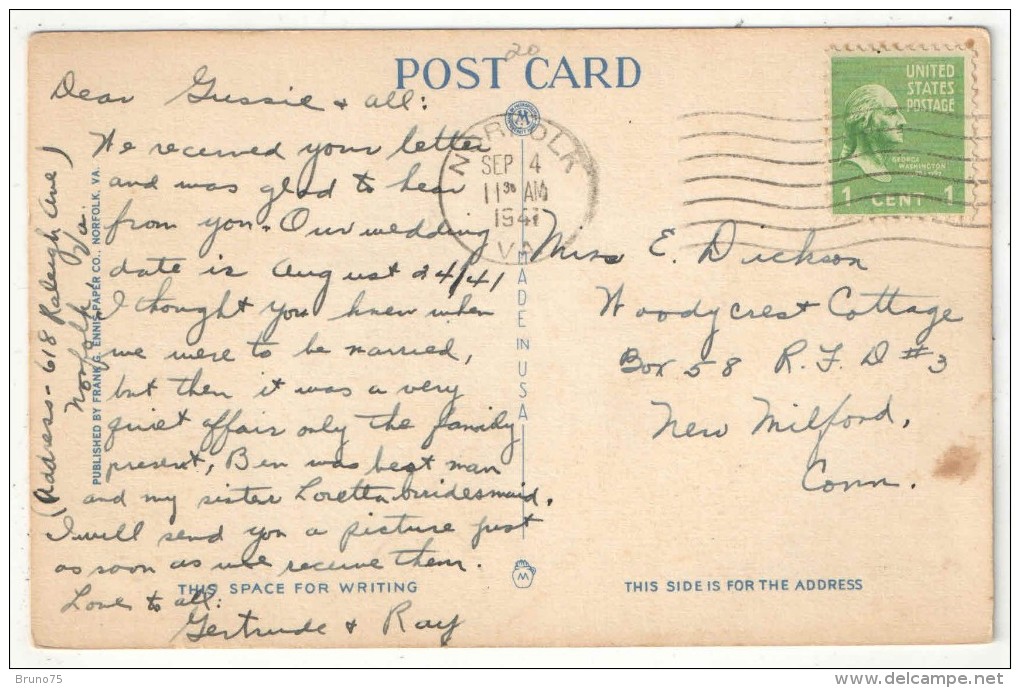 20
POST CARD
UNITED
STATES
POSTAGE
GEORGE
WASHINGTON
1 CENT 1
NORFOLK
SEP 4
11 30 AM
1941
VA
Dear Gussie & all:
We received your letter
and was glad to hear
from you. Our wedding
date is August 24/41
I thought you knew when
we were to be married,
but then it was a very
quiet affair only the family
present, Ben was best man
and my sister Loretta bridesmaid.
I will send you a picture just
as soon as we receive them.
Love to all:
Gertrude & Ray
(Address - 618 Raleigh Ave)
Norfolk, Va.
PUBLISHED BY FRANK G. ENNIS PAPER CO., NORFOLK, VA.
MADE IN USA
Miss E. Dickson
Woodycrest Cottage
Box 58 R. F. D #3
New Milford,
Conn.
THIS SPACE FOR WRITING
THIS SIDE IS FOR THE ADDRESS
Bruno75
delcampe.net